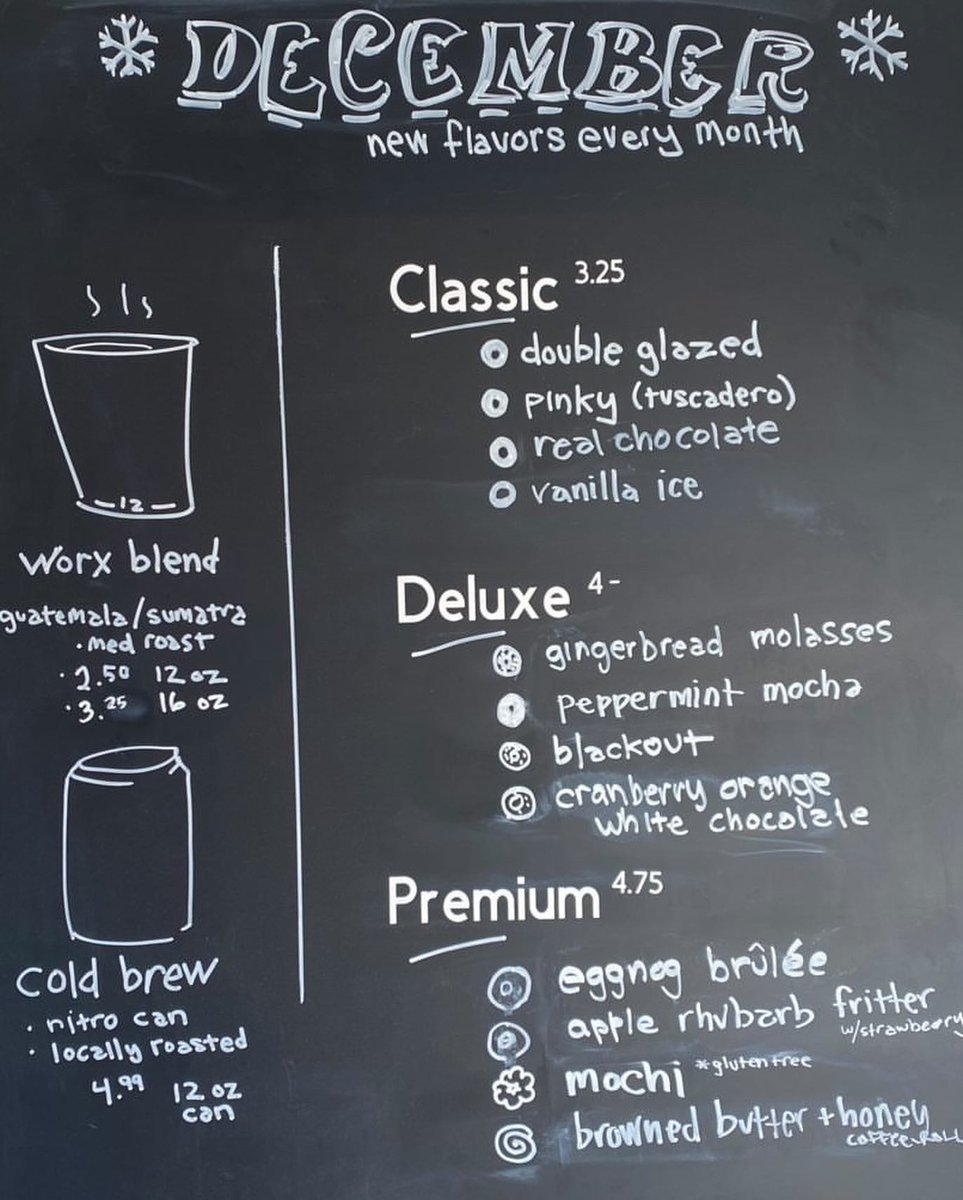 DECEMBER
new flavors every month
12
worx blend
guatemala/sumatra
• med roast
• 2.50 12 oz
• 3.25 16 oz
cold brew
• nitro can
• locally roasted
4.99 12 oz
can
Classic 3.25
double glazed
pinky (tuscadero)
real chocolate
vanilla ice
Deluxe 4-
gingerbread molasses
peppermint mocha
blackout
cranberry orange
white chocolate
Premium 4.75
eggnog brûlée
apple rhubarb fritter
w/strawberry
mochi *gluten free
browned butter + honey
coffee roll